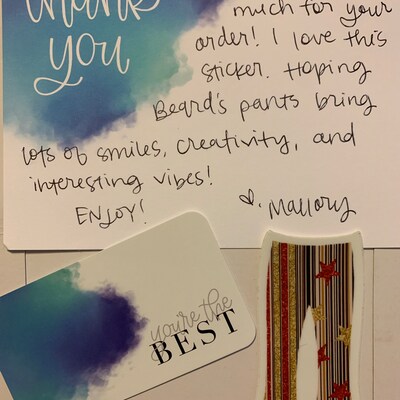 thank
you
much for your
order! I love this
sticker. Hoping
Beard's pants bring
lots of smiles, creativity, and
interesting vibes!
ENJOY!
♡. Mallory
you're the
BEST